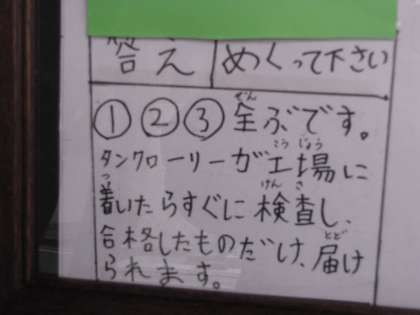 答え めくって下さい
①②③全ぶです。
タンクローリーが工場に
着いたらすぐに検査し、
合格したものだけ、届け
られます。